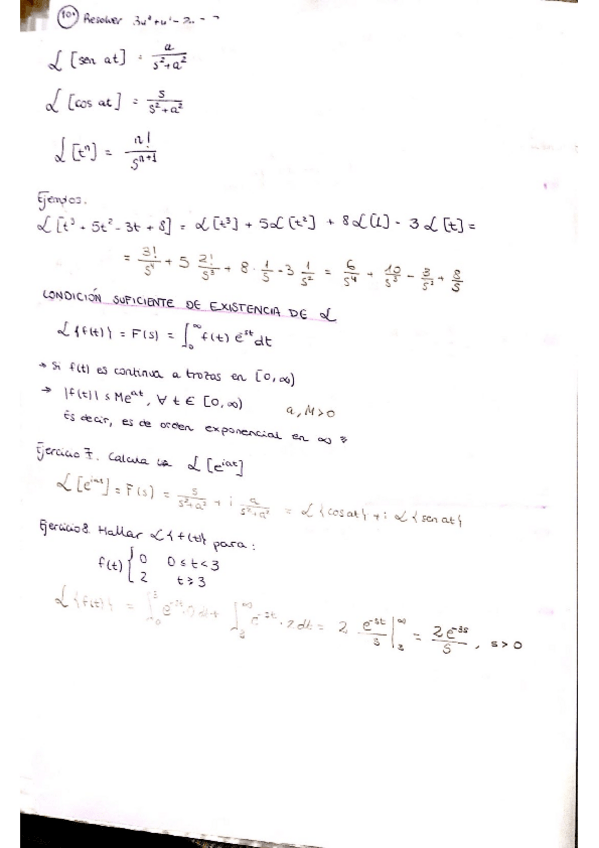 10. Resolver 3u" + u' - 2
ℒ [sen at] = a/(s²+a²)
ℒ [cos at] = s/(s²+a²)
ℒ [tⁿ] = n!/sⁿ⁺¹
ℒ [t³ + 5t² - 3t + 8] = ℒ [t³] + 5ℒ [t²] + 8ℒ [1] - 3 ℒ [t] =
= 3!/s⁴ + 5 2!/s³ + 8 · 1/s - 3 1/s² = 6/s⁴ + 10/s³ - 3/s² + 8/s
CONDICIÓN SUFICIENTE DE EXISTENCIA DE ℒ
ℒ {f(t)} = F(s) = ∫₀^∞ f(t) e^-st dt
→ Si f(t) es continua a trozos en [0, ∞)
→ |f(t)| ≤ Me^at, ∀ t ∈ [0, ∞) a, M > 0
Es decir, es de orden exponencial en ∞
Ejercicio 7. Calcula la ℒ [e^iat]
ℒ [e^iat] = F(s) = s/(s²+a²) + i a/(s²+a²) = ℒ {cos at} + i ℒ {sen at}
Ejercicio 8. Hallar ℒ {f(t)} para:
f(t) { 0 0 ≤ t < 3
2 t ≥ 3
ℒ {f(t)} = ∫₀³ e^-st 0 dt + ∫₃^∞ e^-st · 2 dt = 2 e^-st/s |₃^∞ = 2e^-3s/s , s > 0